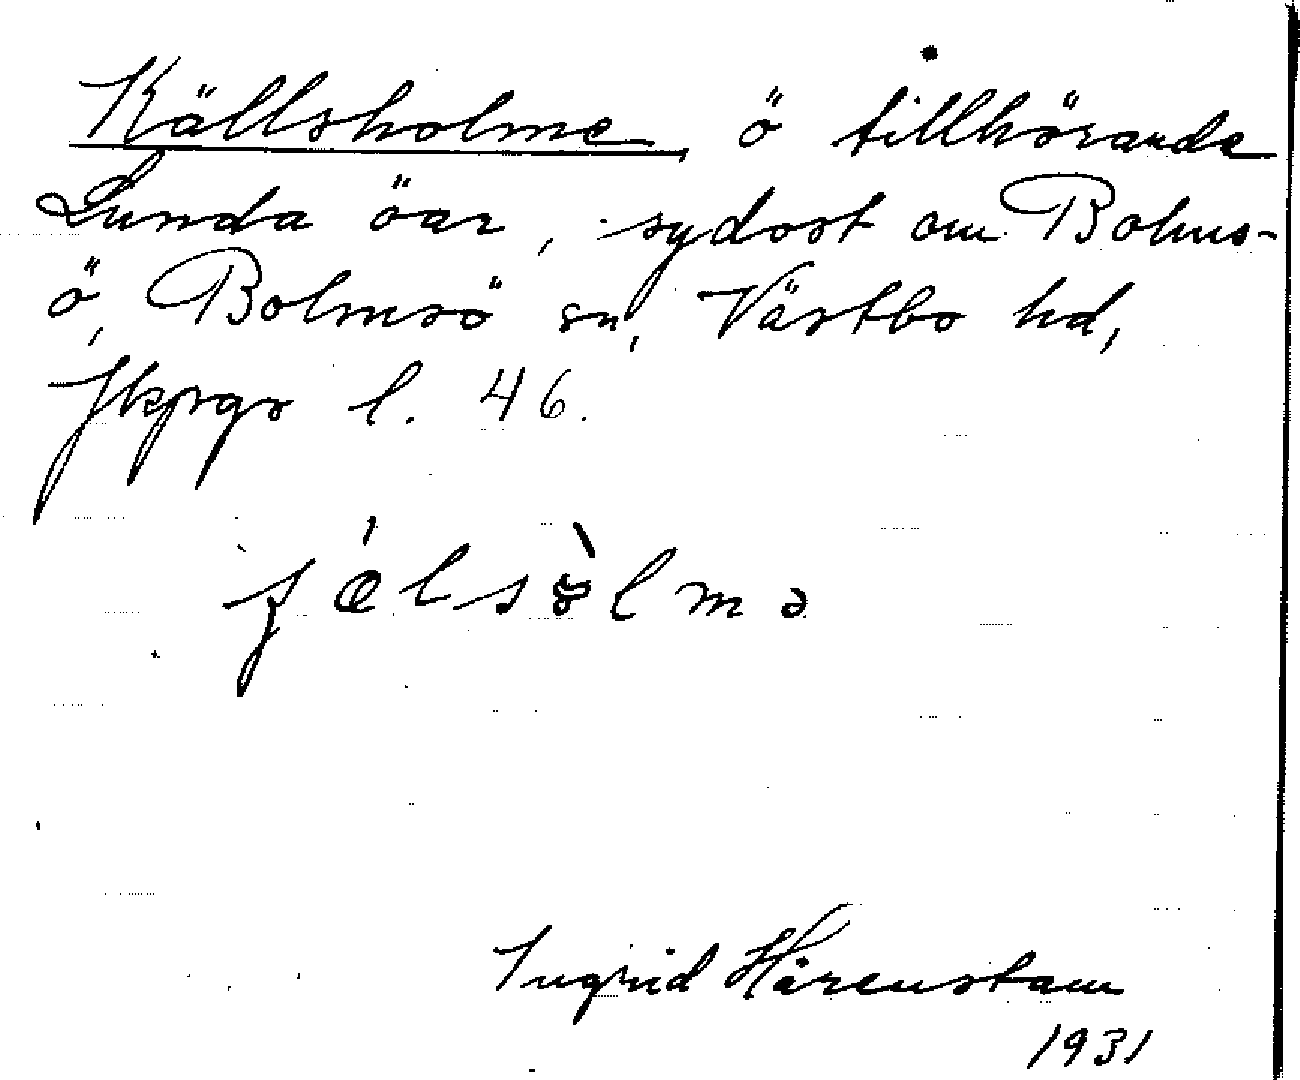 Källsholme, ö tillhörande
Lunda öar, sydost om Bolms-
ö, Bolmsö sn, Västbo hd,
Jkpgs l. 46.
fǽlsòlmə
Ingrid Härenstam
1931